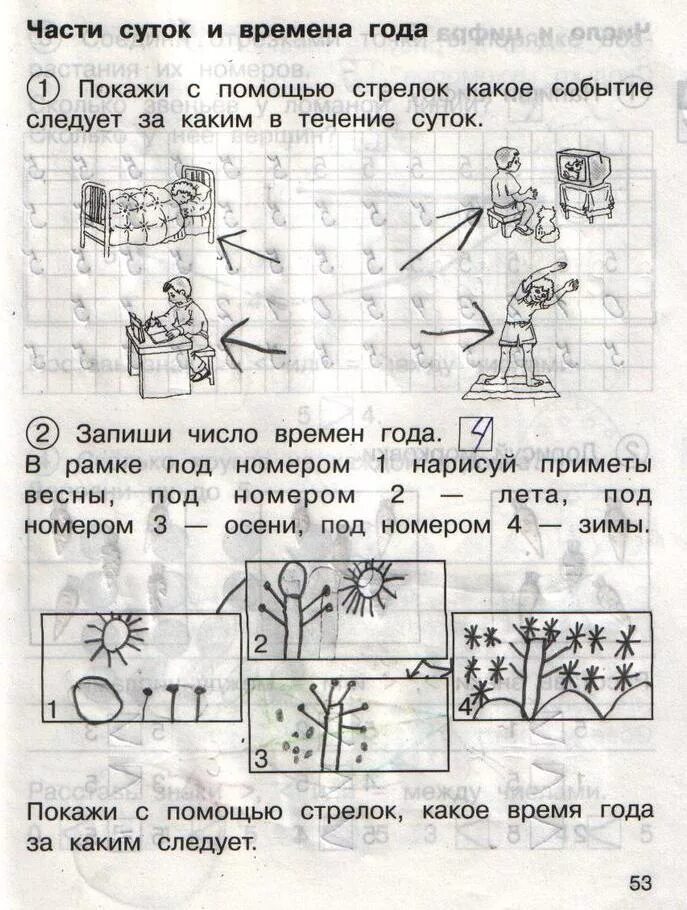 Части суток и времена года
1 Покажи с помощью стрелок какое событие
следует за каким в течение суток.
2 Запиши число времен года. 4
В рамке под номером 1 нарисуй приметы
весны, под номером 2 — лета, под
номером 3 — осени, под номером 4 — зимы.
2
1
4
3
Покажи с помощью стрелок, какое время года
за каким следует.
53